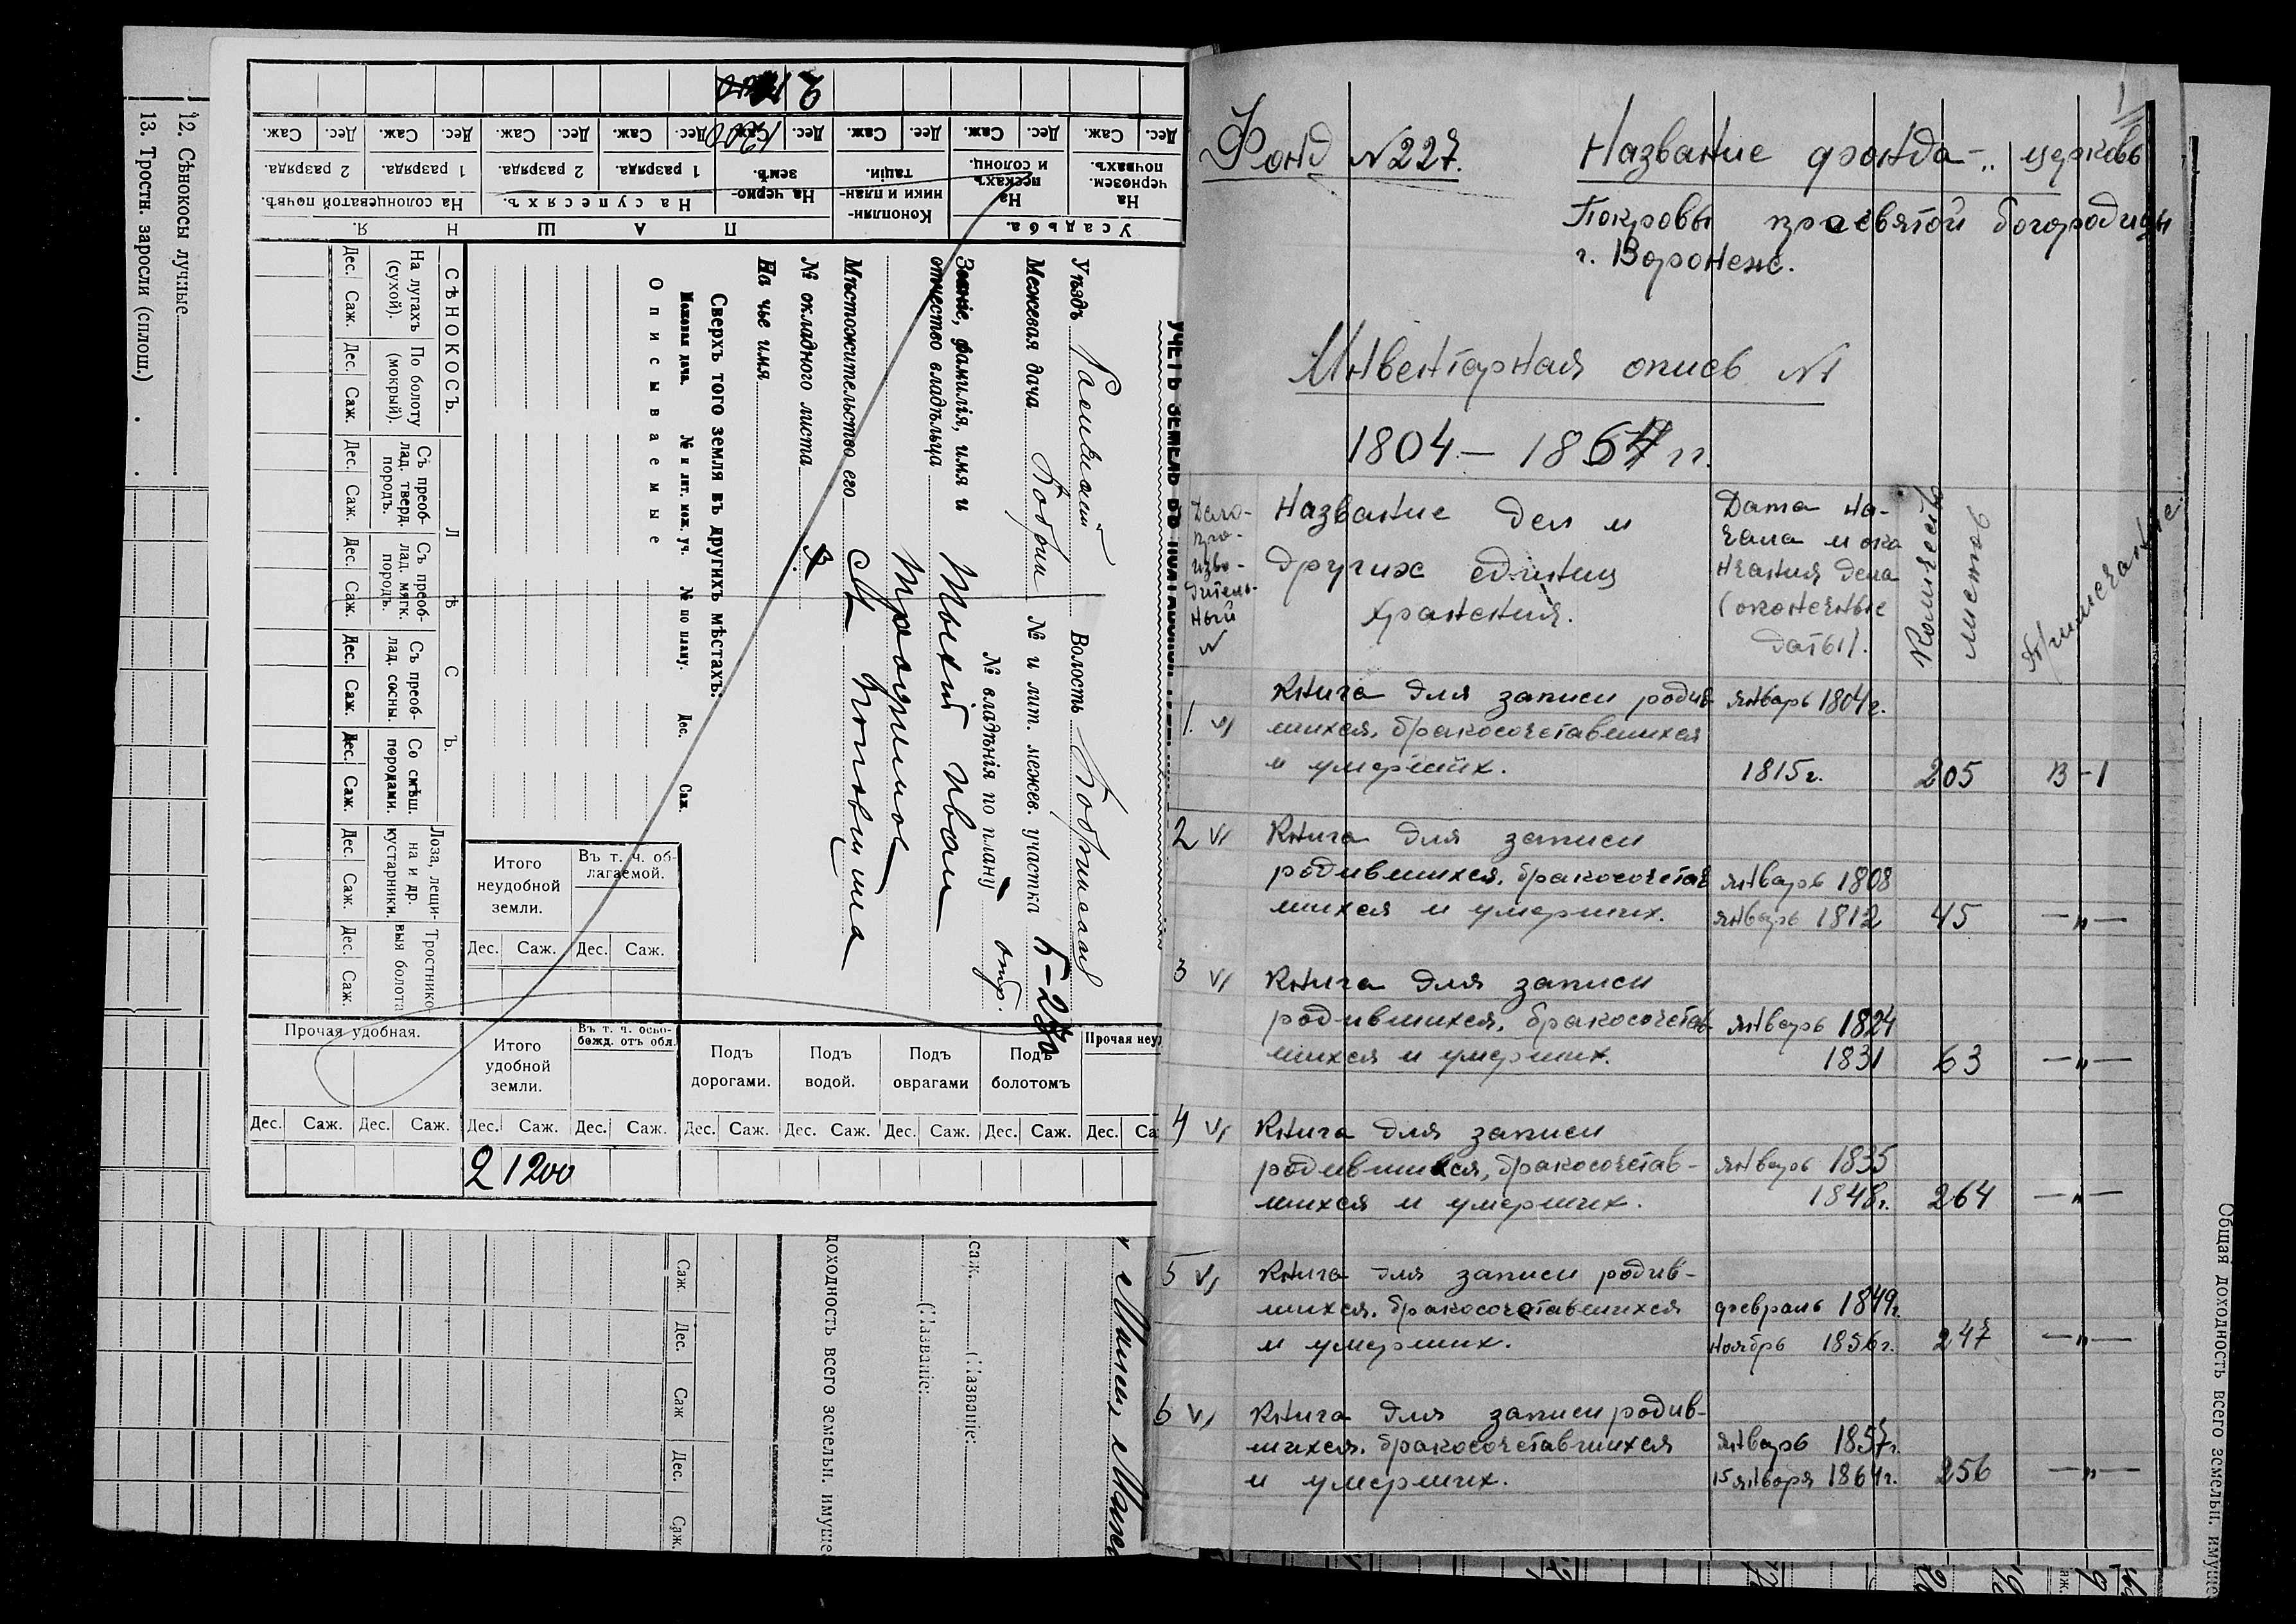 12. Сѣнокосы лучные
13. Тростн. заросли (сплош.)
Усадьба.
На чернозем. почвахъ.
На пескахъ и солонц.
Коноплян-
ники и план-
таціи.
П А Ш Н Я.
На черно-
земѣ.
На супесяхъ.
1 разряда.
2 разряда.
На солонцеватой почвѣ.
1 разряда.
2 разряда.
Дес. Саж. Дес. Саж. Дес. Саж. Дес. Саж. Дес. Саж. Дес. Саж. Дес. Саж. Дес. Саж.
2 1200
УЧЕТЪ ЗЕМЕЛЬ ВЪ ПОЛТАВСКОЙ
Уѣздъ
Волость
Межевая дача
№ и лит. межев. участка
№ владѣнія по плану
отр.
Званіе, фамилія, имя и
отчество владѣльца
Иван
Мѣстожительство его
№ окладного листа
На чье имя
Сверхъ того земля въ другихъ мѣстахъ:
Межовая дача. № и лит. меж. уч. № по плану. Дес. Саж.
Описываемые
СѢНОКОСЪ.
На лугахъ
(сухой).
По болоту
(мокрый).
Л Ѣ С Ъ.
Съ преоб-
лад. тверд.
породъ.
Съ преоб-
лад. мягк.
породъ.
Съ преоб-
лад. сосны
Со смѣш.
породами.
Лоза, лещи-
на и др.
кустарники.
Тростнико-
выя болота
Дес. Саж. Дес. Саж. Дес. Саж. Дес. Саж. Дес. Саж. Дес. Саж. Дес. Саж. Дес. Саж.
Итого
неудобной
земли.
Въ т. ч. об-
лагаемой.
Дес. Саж. Дес. Саж.
Прочая удобная.
Итого
удобной
земли.
Въ т. ч. осво-
божд. отъ обл.
Подъ
дорогами.
Подъ
водой.
Подъ
оврагами
Подъ
болотомъ
Прочая неу
Дес. Саж. Дес. Саж. Дес. Саж. Дес. Саж. Дес. Саж. Дес. Саж. Дес. Саж. Дес. Саж. Дес. Са
2 1200
Саж. Дес. Саж Дес. Саж.
доходность всего земельн. имуще
саж.
(Названіе:
(Названіе:
Фонд №227. Название фонда - „ церковь
Покровы пресвятой богородицы
г. Воронеж.
Инвентарная опись №1
1804 – 1864 гг.
Дело-
про-
изво-
дитель-
ный
№
Название дел и
других единиц
хранения.
Дата на-
чала и око
нчания дела
(оконечные
даты).
Количество
листов
Примечание
1. Книга для записи родив январь 1804г.
шихся, бракосочетавшихся
и умерших. 1815г. 205 В-1
2 Книга для записи
родившихся, бракосочетав январь 1808
шихся и умерших. январь 1812 45 —„—
3 Книга для записи
родившихся, бракосочетав январь 1824
шихся и умерших. 1831 63 —„—
4 Книга для записи
родившихся, бракосочетав- январь 1835
шихся и умерших. 1848г. 264 —„—
5 Книга для записи родив-
шихся, бракосочетавшихся февраль 1849г.
и умерших. ноябрь 1856г. 247 —„—
6 Книга для записи родив-
шихся, бракосочетавшихся январь 1857г.
и умерших. 15 января 1864г. 256 —„—
Общая доходность всего земельн. имуще